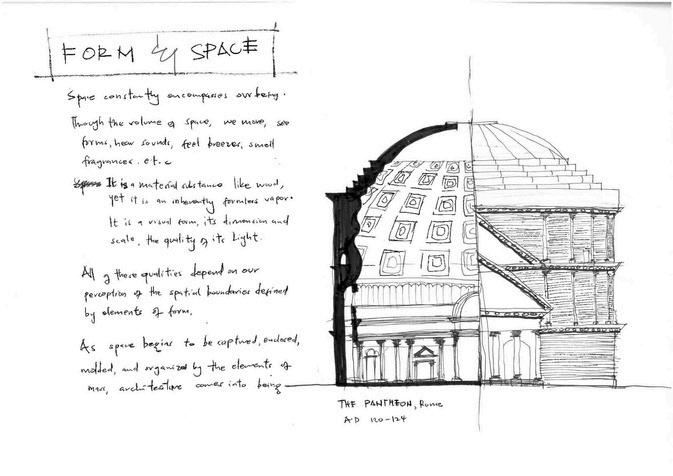 FORM & SPACE
Space constantly encompasses our being.
Through the volume of space, we move, see
forms, hear sounds, feel breezes, smell
fragrances. etc
It is a material substance like wood,
yet it is an inherently formless vapor.
It is a visual form, its dimension and
scale, the quality of its Light.
All of these qualities depend on our
perception of the spatial boundaries defined
by elements of form.
As space begins to be captured, enclosed,
molded, and organized by the elements of
mass, architecture comes into being
THE PANTHEON, Rome
AD 120-124